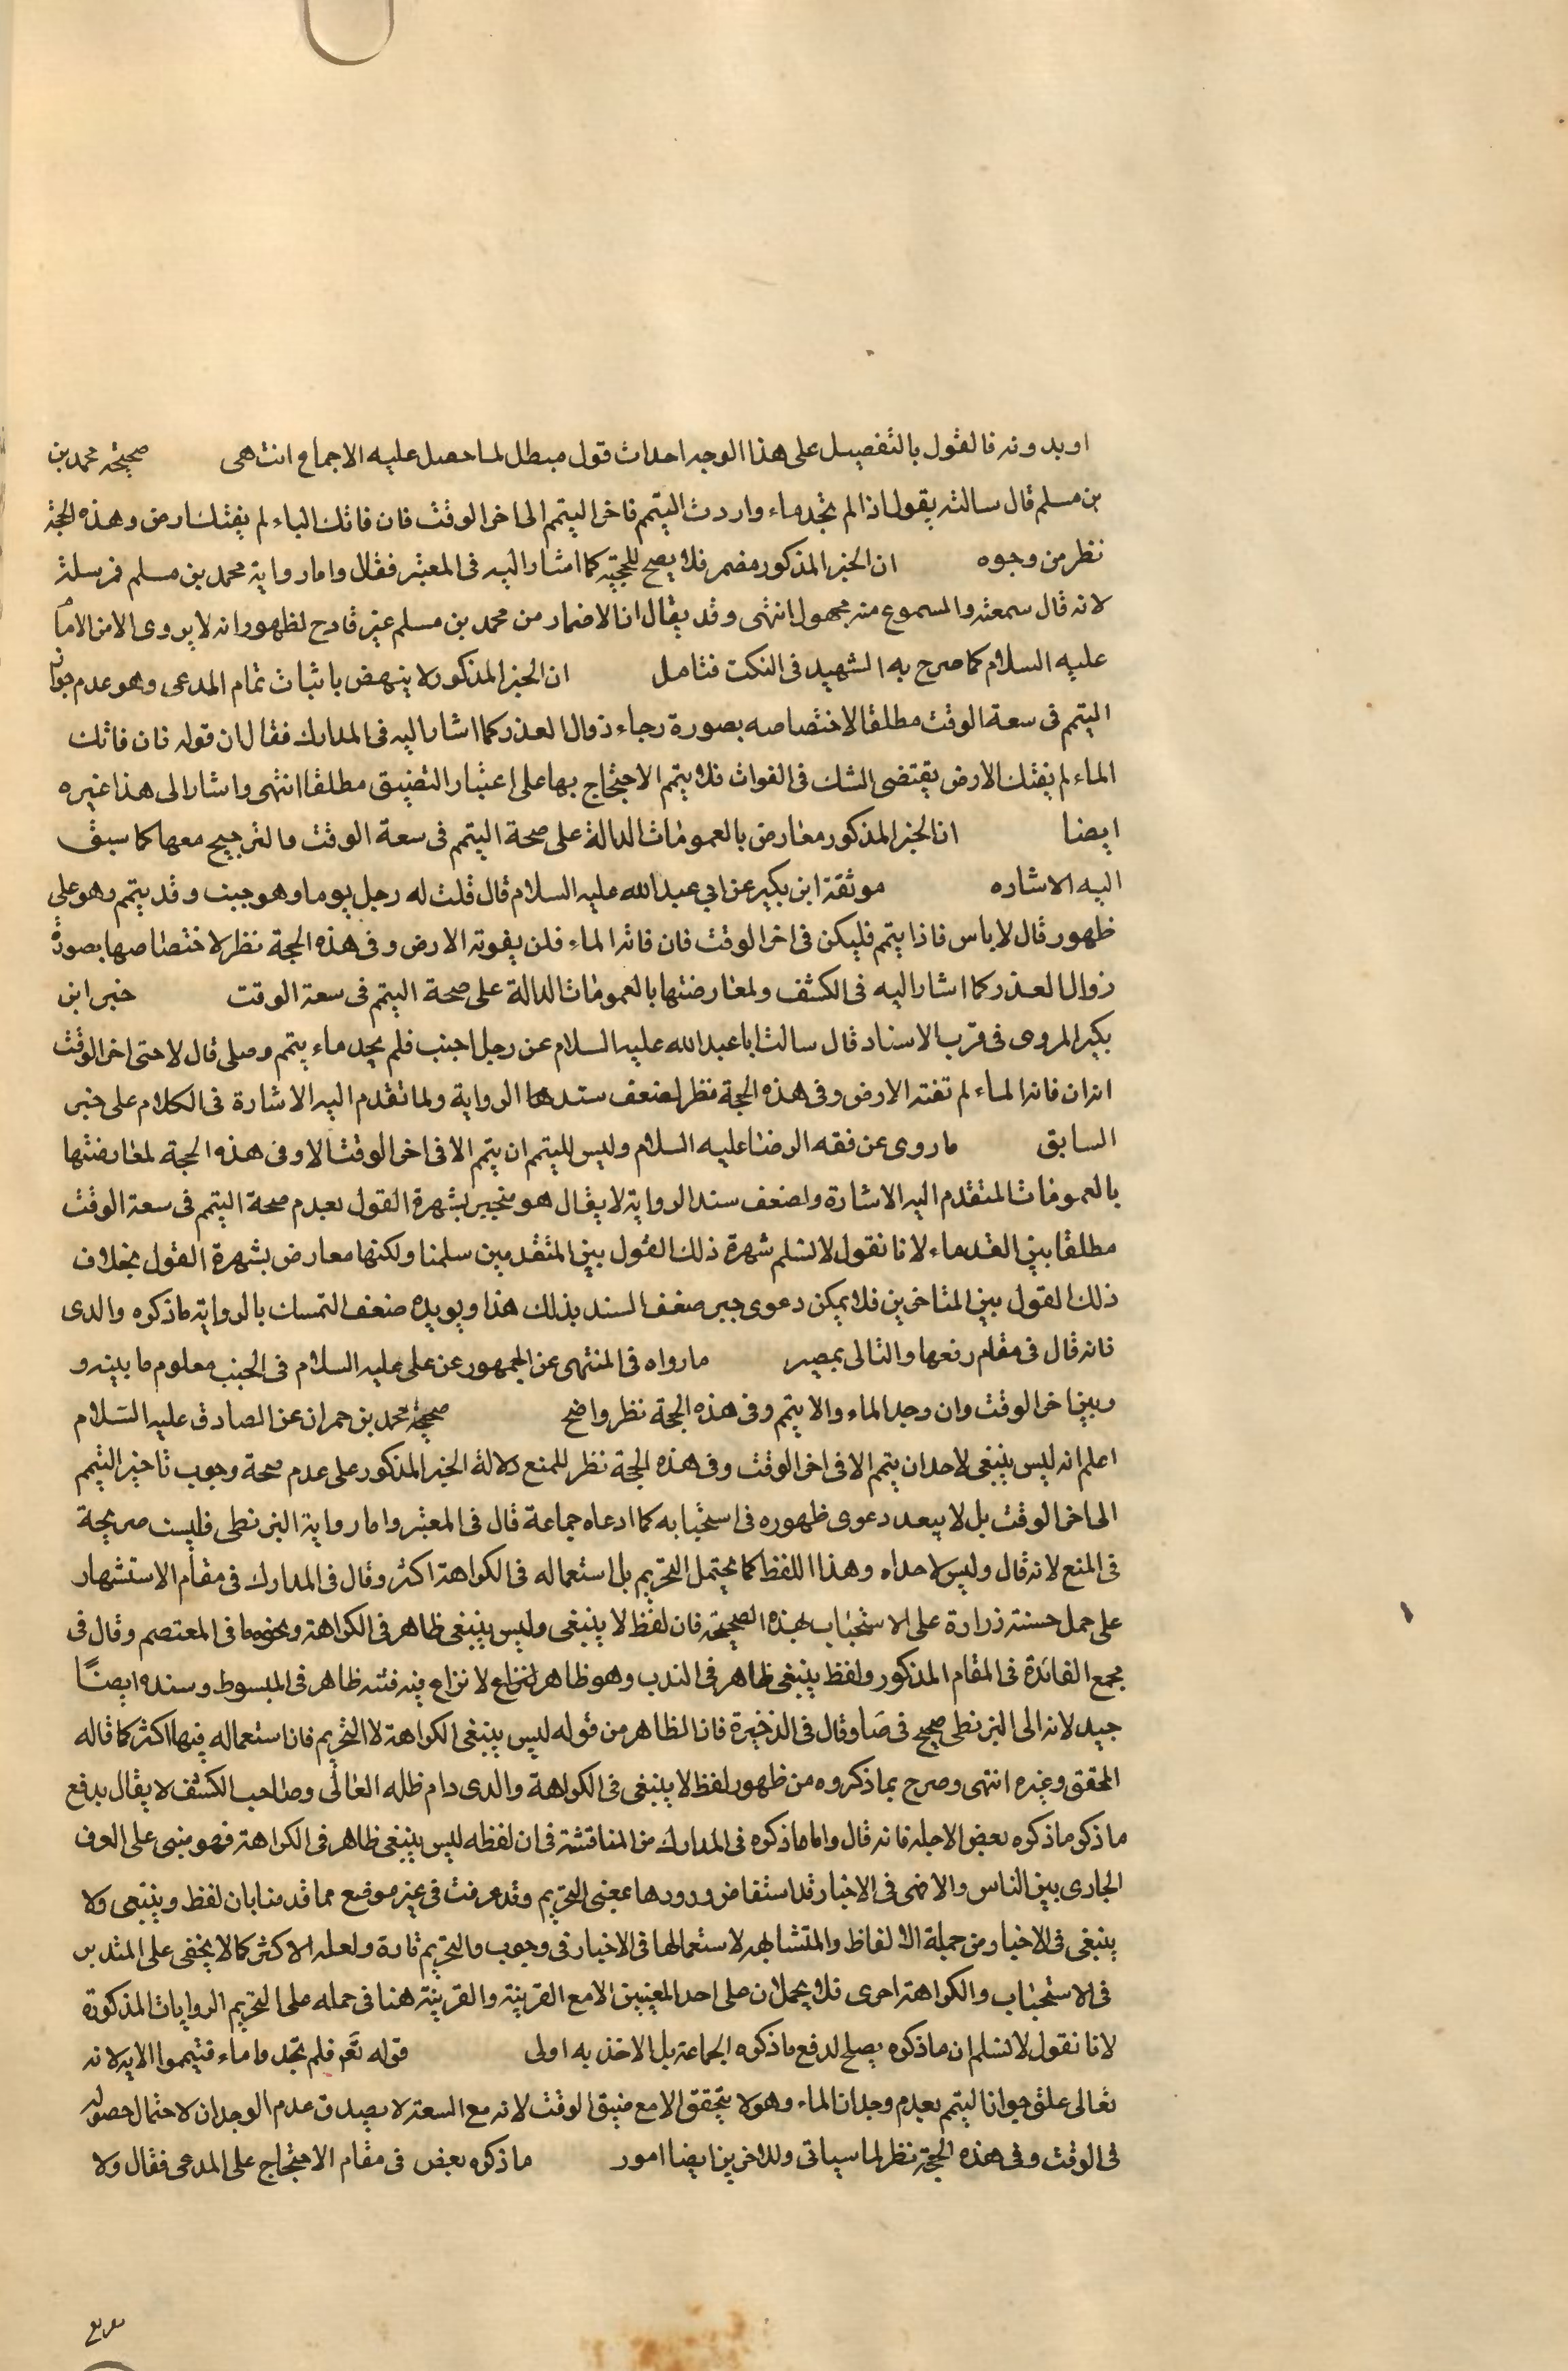 او بدونه فالقول بالتفصيل على هذا الوجه احداث قول مبطل لما حصل عليه الاجماع انتهى صحيحة محمد بن
بن مسلم قال سالته يقول اذا لم تجد ماء واردت التيمم فاخر التيمم الى اخر الوقت فان فاتك الماء لم يفتك الارض وهذه الحجة
نظر من وجوه ان الخبر المذكور مضمر فلا يصح للحجية كما اشار اليه فى المعتبر فقال واما رواية محمد بن مسلم فمرسلة
لانه قال سمعته والمسموع منه مجهول انتهى وقد يقال ان الاضمار من محمد بن مسلم غير قادح لظهور انه لا يروى الا من الامام
عليه السلام كما صرح به الشهيد فى النكت فتامل ان الخبر المذكور لا ينهض باثبات تمام المدعى وهو عدم جواز
التيمم فى سعة الوقت مطلقا لاختصاصه بصورة رجاء زوال العذر كما اشار اليه فى المدارك فقال ان قوله فان فاتك
الماء لم يفتك الارض يقتضى الشك فى الفوات فلا يتم الاحتجاج بها على اعتبار التضيق مطلقا انتهى واشار الى هذا غيره
ايضا ان الخبر المذكور معارض بالعمومات الدالة على صحة التيمم فى سعة الوقت والترجيح معها كما سبق
اليه الاشاره موثقة ابن بكير عن ابي عبد الله عليه السلام قال قلت له رجل يوما وهو جنب وقد يتمم وهو على
طهور قال لا باس فاذا يتمم فليكن فى اخر الوقت فان فاته الماء فلن يفوته الارض وفى هذه الحجة نظر لاختصاصها بصورة
زوال العذر كما اشار اليه فى الكشف ولمعارضتها بالعمومات الدالة على صحة التيمم فى سعة الوقت خبر ابن
بكير المروى فى قرب الاسناد قال سالت ابا عبد الله عليه السلام عن رجل اجنب فلم يجد ماء يتمم وصلى قال لا حتى اخر الوقت
انه ان فاته الماء لم تفته الارض وفى هذه الحجة نظر لضعف سند هذا الرواية ولما تقدم اليه الاشارة فى الكلام على خبر
السابق ما روى عن فقه الرضا عليه السلام وليس للمتيمم ان يتمم الا فى اخر الوقت الا وفى هذه الحجة لمعارضتها
بالعمومات المتقدم اليه الاشارة ولضعف سند الرواية لا يقال هو منجبر بشهرة القول بعدم صحة التيمم فى سعة الوقت
مطلقا بين القدماء لانا نقول لا نسلم شهرة ذلك القول بين المتقدمين سلمنا ولكنها معارض بشهرة القول بخلاف
ذلك القول بين المتاخرين فلا يمكن دعوى جبر ضعف السند بذلك هذا ويويده ضعف التمسك بالرواية ما ذكره والدى
فانه قال فى مقام رفعها والتالى بمصير ما رواه فى المنتهى عن الجمهور عن على عليه السلام فى الجنب معلوم ما بينه و
وبين اخر الوقت وان وجد الماء والا يتمم وفى هذه الحجة نظر واضح صحيحة محمد بن حمران عن الصادق عليه السلام
اعلم انه ليس ينبغى لاحد ان يتمم الا فى اخر الوقت وفى هذه الحجة نظر للمنع دلالة الخبر المذكور على عدم صحة وجوب تاخير التيمم
الى اخر الوقت بل لا يبعد دعوى ظهوره فى استحبابه كما ادعاه جماعة قال فى المعتبر واما رواية البزنطى فليست صريحة
فى المنع لانه قال وليس لاحد اه وهذا اللفظ كما يحتمل التحريم بل استعماله فى الكراهة اكثر وقال فى المدارك فى مقام الاستشهار
على حمل حسنة زرارة على الاستحباب بهذه الصحيحة فان لفظ لا ينبغى وليس ينبغى ظاهر فى الكراهة ونحوهما فى المعتصم وقال فى
مجمع الفائدة فى المقام المذكور ولفظ ينبغى ظاهر فى الندب وهو ظاهر لنزاع لا نزاع فيه فتنه ظاهر فى المبسوط وسنده ايضًا
جيد لانه الى البزنطى صحيح فى صا وقال فى الذخيرة فان الظاهر من قوله ليس ينبغى الكراهة لا التحريم فان استعماله فيها اكثر كما قاله
المحقق وغيره انتهى وصرح بما ذكروه من ظهور لفظ لا ينبغى فى الكراهة والدى دام ظله العالى وصاحب الكشف لا يقال يدفع
ما ذكر ما ذكره بعض الاجلة فانه قال واما ما ذكره فى المدارك من المناقشة فى ان لفظه ليس ينبغى ظاهر فى الكراهة فهو مبنى على العرف
الجارى بين الناس والا ضى فى الاخبار قد استفاض ورودها بمعنى التحريم وقد عرفت فى غير موضع مما قدمنا بان لفظ وينبغى ولا
ينبغى فى الاخبار من جملة الالفاظ والمتشابهه لاستعمالها فى الاخبار فى وجوب والتحريم تارة ولعله الاكثر كما لا يخفى على المتدبر
فى الاستحباب والكراهة اخرى فلا يحملان على احد المعنيين الا مع القرينة والقرينة هنا فى حمله على التحريم الروايات المذكورة
لانا نقول لا نسلم ان ما ذكره يصلح لدفع ما ذكره الجماعة بل الاخذ به اولى قوله تعم فلم تجدوا ماء فتيمموا الاية لانه
تعالى علق جواز التيمم بعدم وجدان الماء وهو لا يتحقق الا مع ضيق الوقت لانه مع السعة لا يصدق عدم الوجدان لاحتمال حصوله
فى الوقت وفى هذه الحجة نظر لما سياتى وللاخرين ايضا امور ما ذكره بعض فى مقام الاحتجاج على المدعى فقال ولا